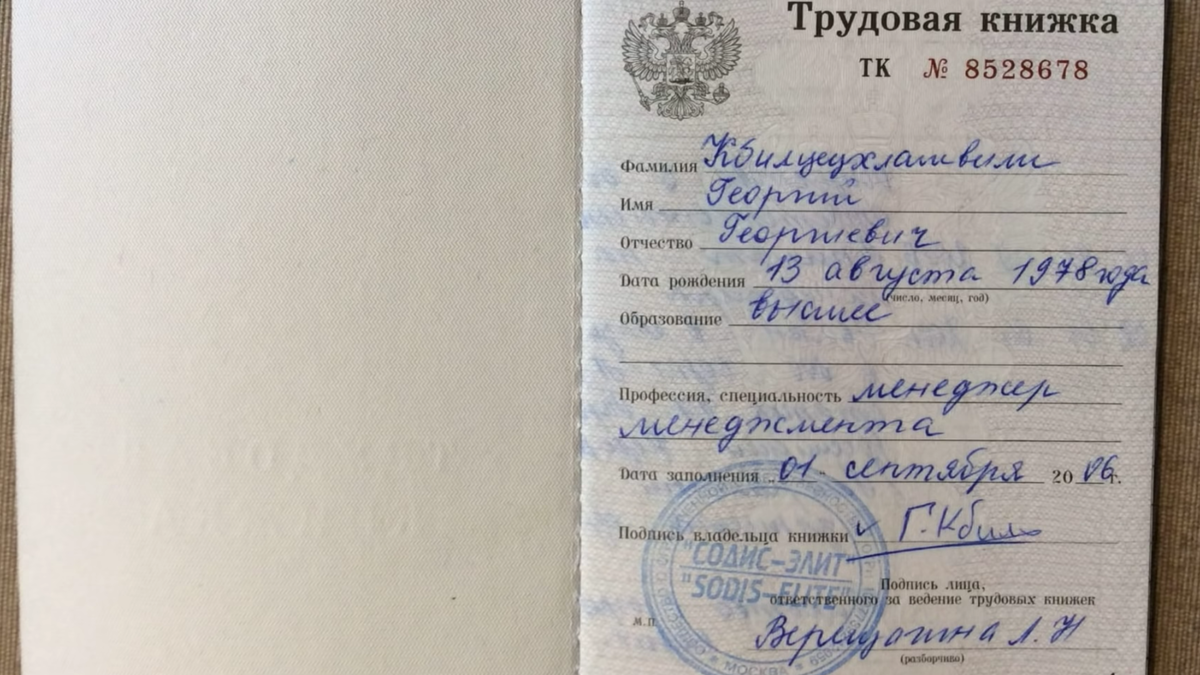 Трудовая книжка
ТК № 8528678
Фамилия Кбилцецхлашвили
Имя Георгий
Отчество Георгиевич
Дата рождения 13 августа 1978 года
(число, месяц, год)
Образование высшее
Профессия, специальность менеджер
менеджмента
Дата заполнения „01" сентября 2006 г.
Подпись владельца книжки Г. Кбил
"СОДИС-ЭЛИТ"
"SODIS-ELITE"
Подпись лица,
ответственного за ведение трудовых книжек
М.П.
Верещагина Л. Н
(разборчиво)
МОСКВА